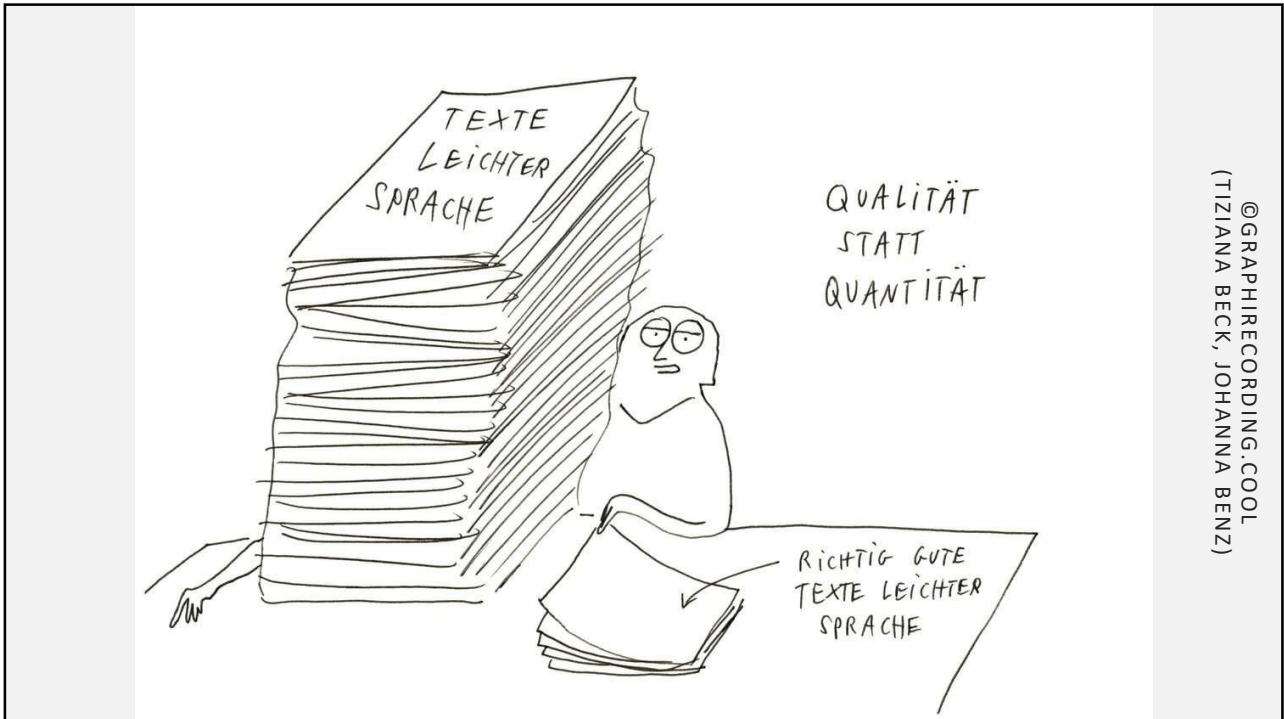 TEXTE
LEiCHTER
SPRACHE
QUALiTÄT
STATT
QUANTiTÄT
RiCHTiG GUTE
TEXTE LEiCHTER
SPRACHE
©GRAPHIRECORDING.COOL
(TIZIANA BECK, JOHANNA BENZ)